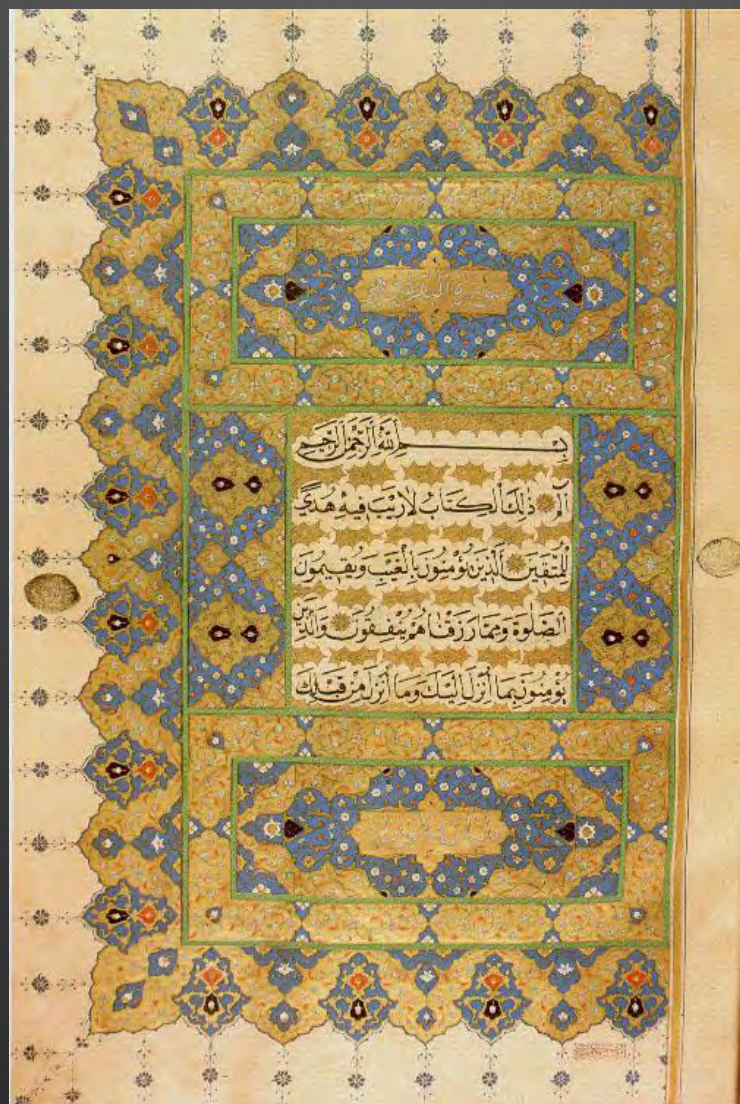 سورة البقرة
بسم الله الرحمن الرحيم
الم ذٰلِكَ الْكِتَابُ لَارَيْبَ فِيهِ هُدًي
لِلْمُتَّقِينَ الَّذِينَ يُؤْمِنُونَ بِالْغَيْبِ وَيُقِيمُونَ
الصَّلٰوةَ وَمِمَّا رَزَقْنَاهُمْ يُنْفِقُونَ وَالَّذِينَ
يُؤْمِنُونَ بِمَا اُنْزِلَ اِلَيْكَ وَمَا اُنْزِلَ مِنْ قَبْلِكَ